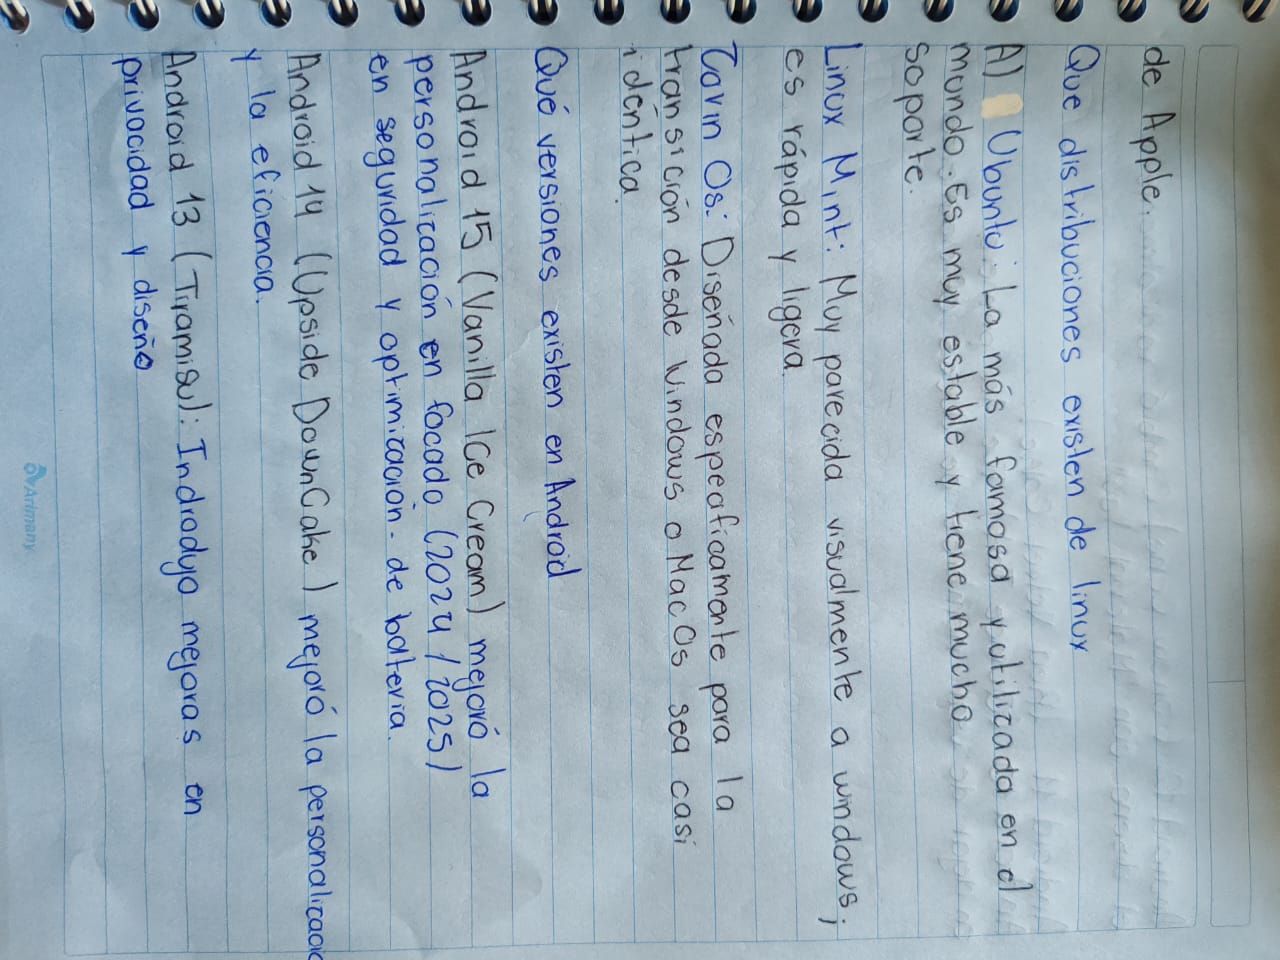 de Apple.
Que distribuciones existen de linux
A) Ubunto: La más famosa y utilizada en el
mundo. Es muy estable y tiene mucho
soporte.
Linux Mint: Muy parecida visualmente a windows;
es rápida y ligera.
Zorin Os: Diseñada especificamente para la
transición desde Windows o MacOs sea casi
idéntica.
Qué versiones existen en Android
Android 15 (Vanilla Ice Cream) mejoró la
personalización en focado (2024 / 2025)
en seguridad y optimización de bateria.
Android 14 (Upside DownCake) mejoró la personalizació
y la eficiencia.
Android 13 (Tiramisu): Indrodujo mejoras en
privacidad y diseño
Arimany